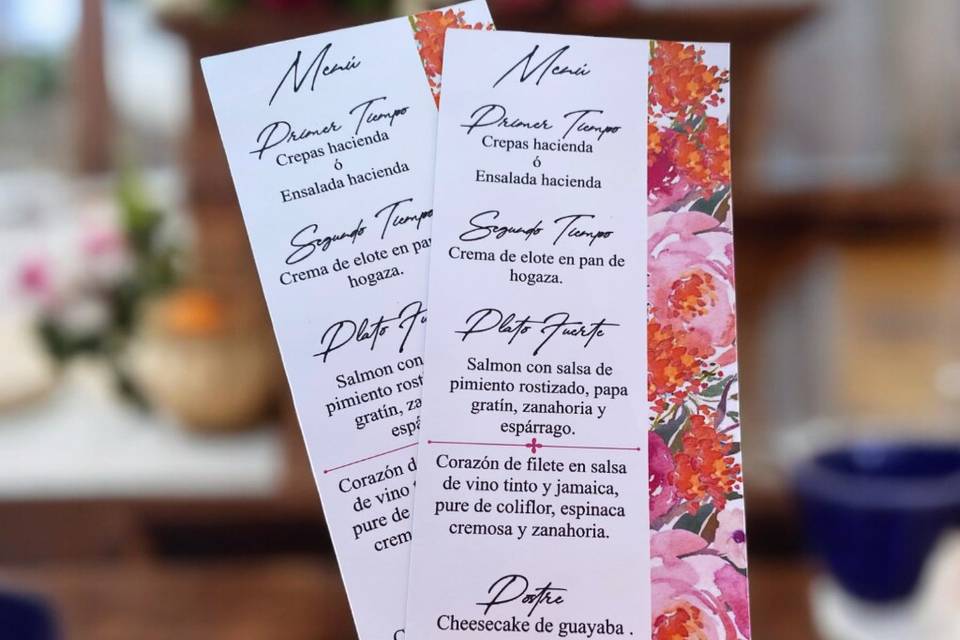 Menú
Primer Tiempo
Crepas hacienda
ó
Ensalada hacienda
Segundo Tiempo
Crema de elote en pan
hogaza.
Plato Fu
Salmon con
pimiento rost
gratín, za
espá
Corazón d
de vino
pure de
crem
C
Menú
Primer Tiempo
Crepas hacienda
ó
Ensalada hacienda
Segundo Tiempo
Crema de elote en pan de
hogaza.
Plato Fuerte
Salmon con salsa de
pimiento rostizado, papa
gratín, zanahoria y
espárrago.
Corazón de filete en salsa
de vino tinto y jamaica,
pure de coliflor, espinaca
cremosa y zanahoria.
Postre
Cheesecake de guayaba .